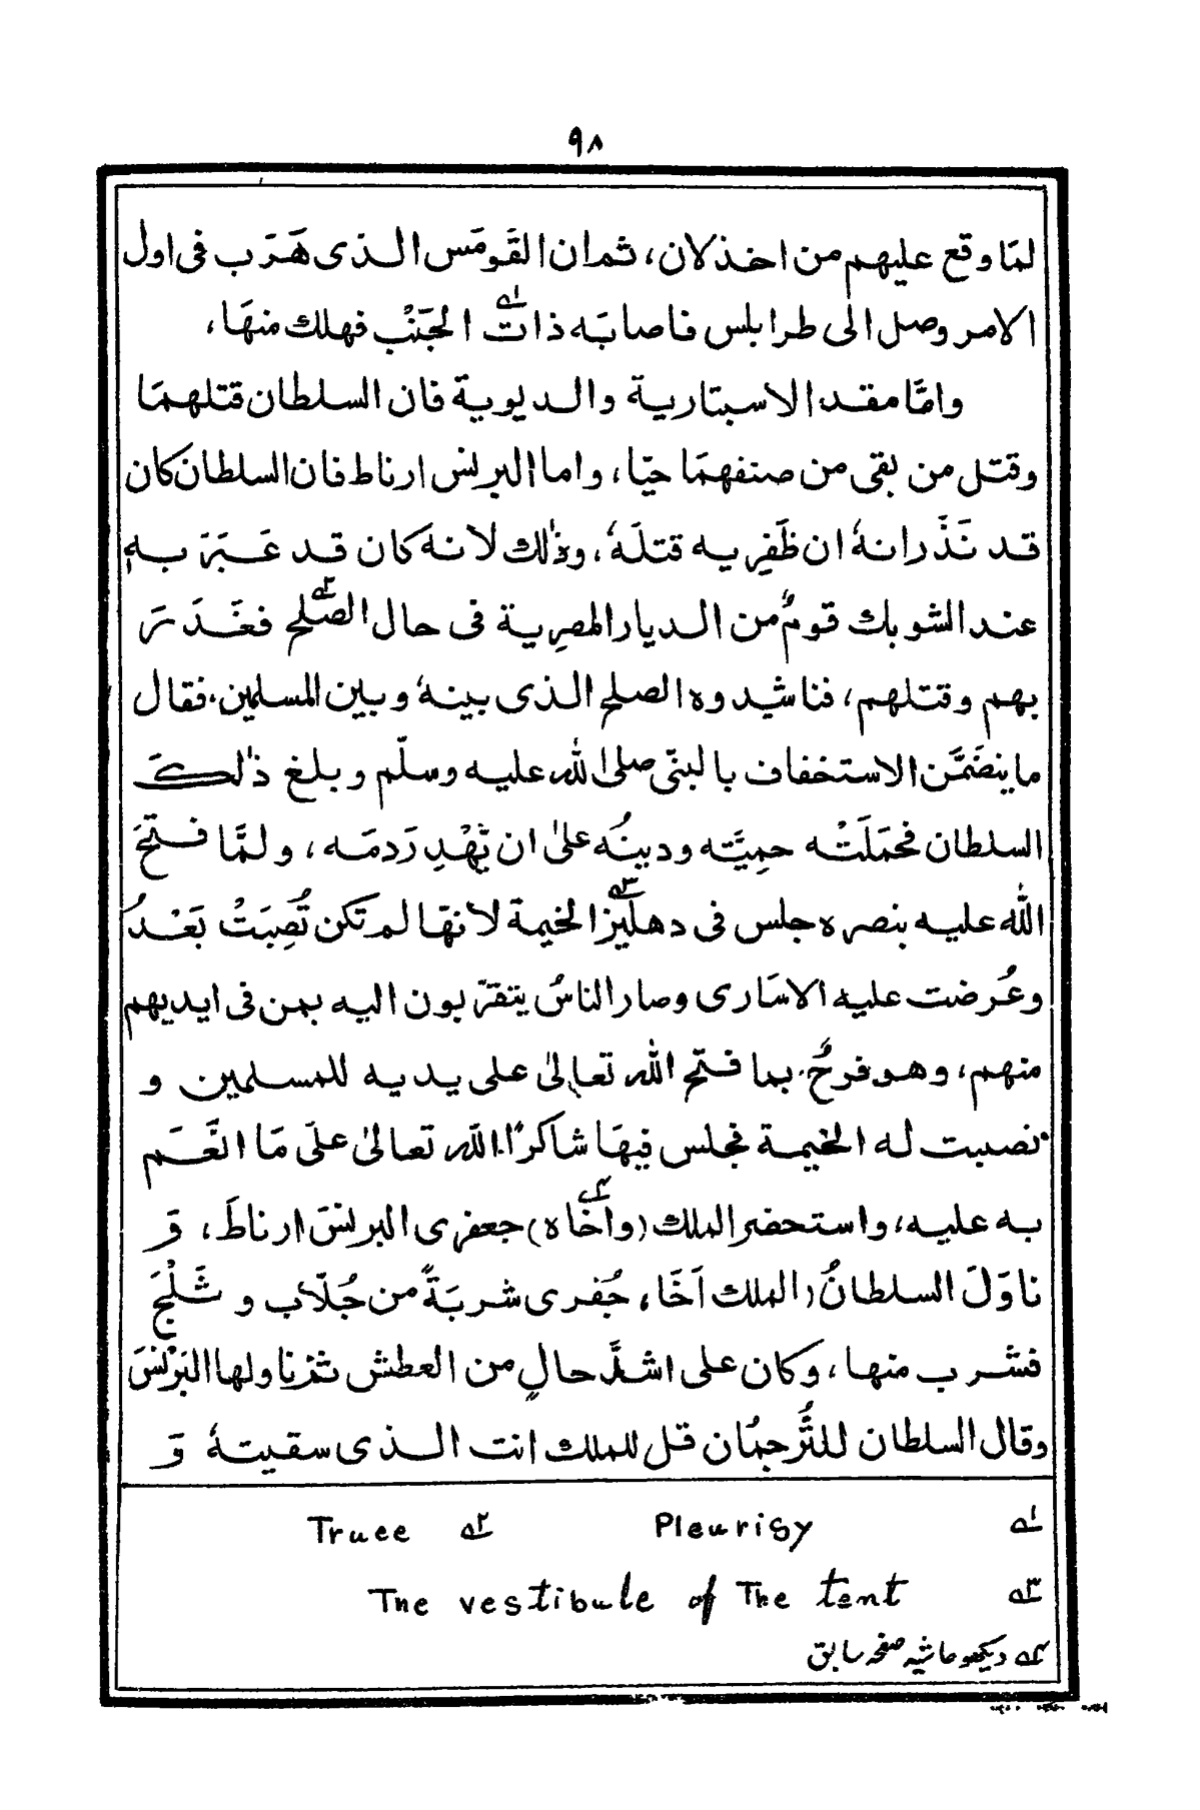 ٩٨
لمَّا وقع عليهم من اخذلان، ثم ان القَومَس الذى هَرَب فى اول
الامر وصل الى طرابلس فاصابَه ذات۱ه الجَنْب فهلك منهَا،
وامَّا مقدا الاسبتارية والديوية فان السلطان قتلهمَا
وقتل من بقى من صنفهمَا حيّا، واما البرنس ارناط فان السلطان كان
قد نَذَر انهٗ ان ظَفِر به قتلَهٗ، وذٰلك لانه كان قد عَبَرَ بهٖ
عند الشوبك قومٌ من الديار المصرية فى حال الصُّلح۲ه فغَدَرَ
بهم وقتلهم، فناشدوه الصلح الذى بينهٗ وبين المسلمين. فقال
ما يتضَمَّن الاستخفاف بالنبىّ صلى الله عليه وسلّم وبلغ ذٰلكَ
السلطان فحمَلَتْه حمِيَّته ودينُه علىٰ ان يَهْدِرَ دمَه، ولمَّا فتحَ
الله عليه بنصره جلس فى دهليز۳ه الخيمة لانهَا لم تكن نُصِبَتْ بَعْدُ
وعُرضت عليه الاسَارى وصار الناسُ يتقرّبون اليه بمن فى ايديهم
منهم، وهو فرحٌ، بما فتح الله تعالىٰ على يديه للمسلمين و
نصبت له الخيمة فجلس فيهَا شاكرًا الله تعالىٰ علىَ مَا انعَم
به عليه، واستحضر الملك (وأخاه)۴ه جعفرى البرنسَ ارناطَ، وَ
ناوَلَ السلطانُ (الملك اَخَا) جُفرى شربَةً من جُلّاب و ثَلْجَ
فشرب منها، وكان على اشدِّ حالٍ من العطش ثم ناولها البَرْنسَ
وقال السلطان للتُّرجمُان قل للملك انت الذى سقيتهٗ وَ
۱ه Pleurisy ۲ه Truce
۳ه The vestibule of The tent
۴ه ديكھو حاشيہ صفحہ سابق